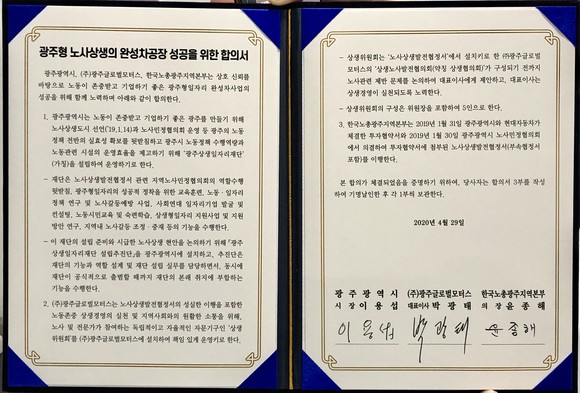 광주형 노사상생의 완성차공장 성공을 위한 합의서
광주광역시, (주)광주글로벌모터스, 한국노총광주지역본부는 상호 신뢰를
바탕으로 노동이 존중받고 기업하기 좋은 광주형일자리 완성차사업의
성공을 위해 함께 노력하며 아래와 같이 합의한다.
1. 광주광역시는 노동이 존중받고 기업하기 좋은 광주를 만들기 위해
노사상생도시 선언('19,1,14)과 노사민정협의회 운영 등 광주의 노동
정책 전반의 실효성 확보를 뒷받침하고 광주시 노동정책 수행역량과
노동관련 시설의 운영효율을 제고하기 위해 「광주상생일자리재단」
(가칭)을 설립하여 운영하기로 한다.
– 재단은 노사상생발전협정서 관련 지역노사민정협의회의 역할수행
뒷받침, 광주형일자리의 성공적 정착을 위한 교육훈련, 노동·일자리
정책 연구 및 노사갈등예방 사업, 사회연대 일자리기업 발굴 및
컨설팅, 노동시민교육 및 숙련학습, 상생형일자리 지원사업 및 지원
방안 연구, 지역내 노사갈등 조정·중재 등의 기능을 수행한다.
– 이 재단의 설립 준비와 시급한 노사상생 현안을 논의하기 위해 「광주
상생일자리재단 설립추진단」을 광주광역시에 설치하고, 추진단은
재단의 기능과 역할 설계 및 재단 설립 실무를 담당하면서, 동시에
재단이 공식적으로 출범할 때까지 재단의 본래 취지에 부합하는
기능을 수행한다.
2. (주)광주글로벌모터스는 노사상생발전협정서의 성실한 이행을 포함한
노동존중 상생경영의 실천 및 지역사회와의 원활한 소통을 위해,
노사 및 전문가가 참여하는 독립적이고 자율적인 자문기구인 '상생
위원회'를 (주)광주글로벌모터스에 설치하여 책임 있게 운영키로 한다.
– 상생위원회는 '노사상생발전협정서'에서 설치키로 한 (주)광주글로벌
모터스의 '상생노사발전협의회(약칭 상생협의회)'가 구성되기 전까지
노사관련 제반 문제를 논의하여 대표이사에게 제안하고, 대표이사는
상생경영이 실천되도록 노력한다.
– 상생위원회의 구성은 위원장을 포함하여 5인으로 한다.
3. 한국노총광주지역본부는 2019년 1월 31일 광주광역시와 현대자동차가
체결한 투자협약서와 2019년 1월 30일 광주광역시 노사민정협의회
에서 의결하여 투자협약서에 첨부된 노사상생발전협정서(부속협정서
포함)를 이행한다.
본 합의가 체결되었음을 증명하기 위하여, 당사자는 합의서 3부를 작성
하여 기명날인한 후 각 1부씩 보관한다.
2020년 4월 29일
광주광역시 (주)광주글로벌모터스 한국노총광주지역본부
시장 이용섭 대표이사 박광태 의장 윤종해
이용섭 박광태 윤종해